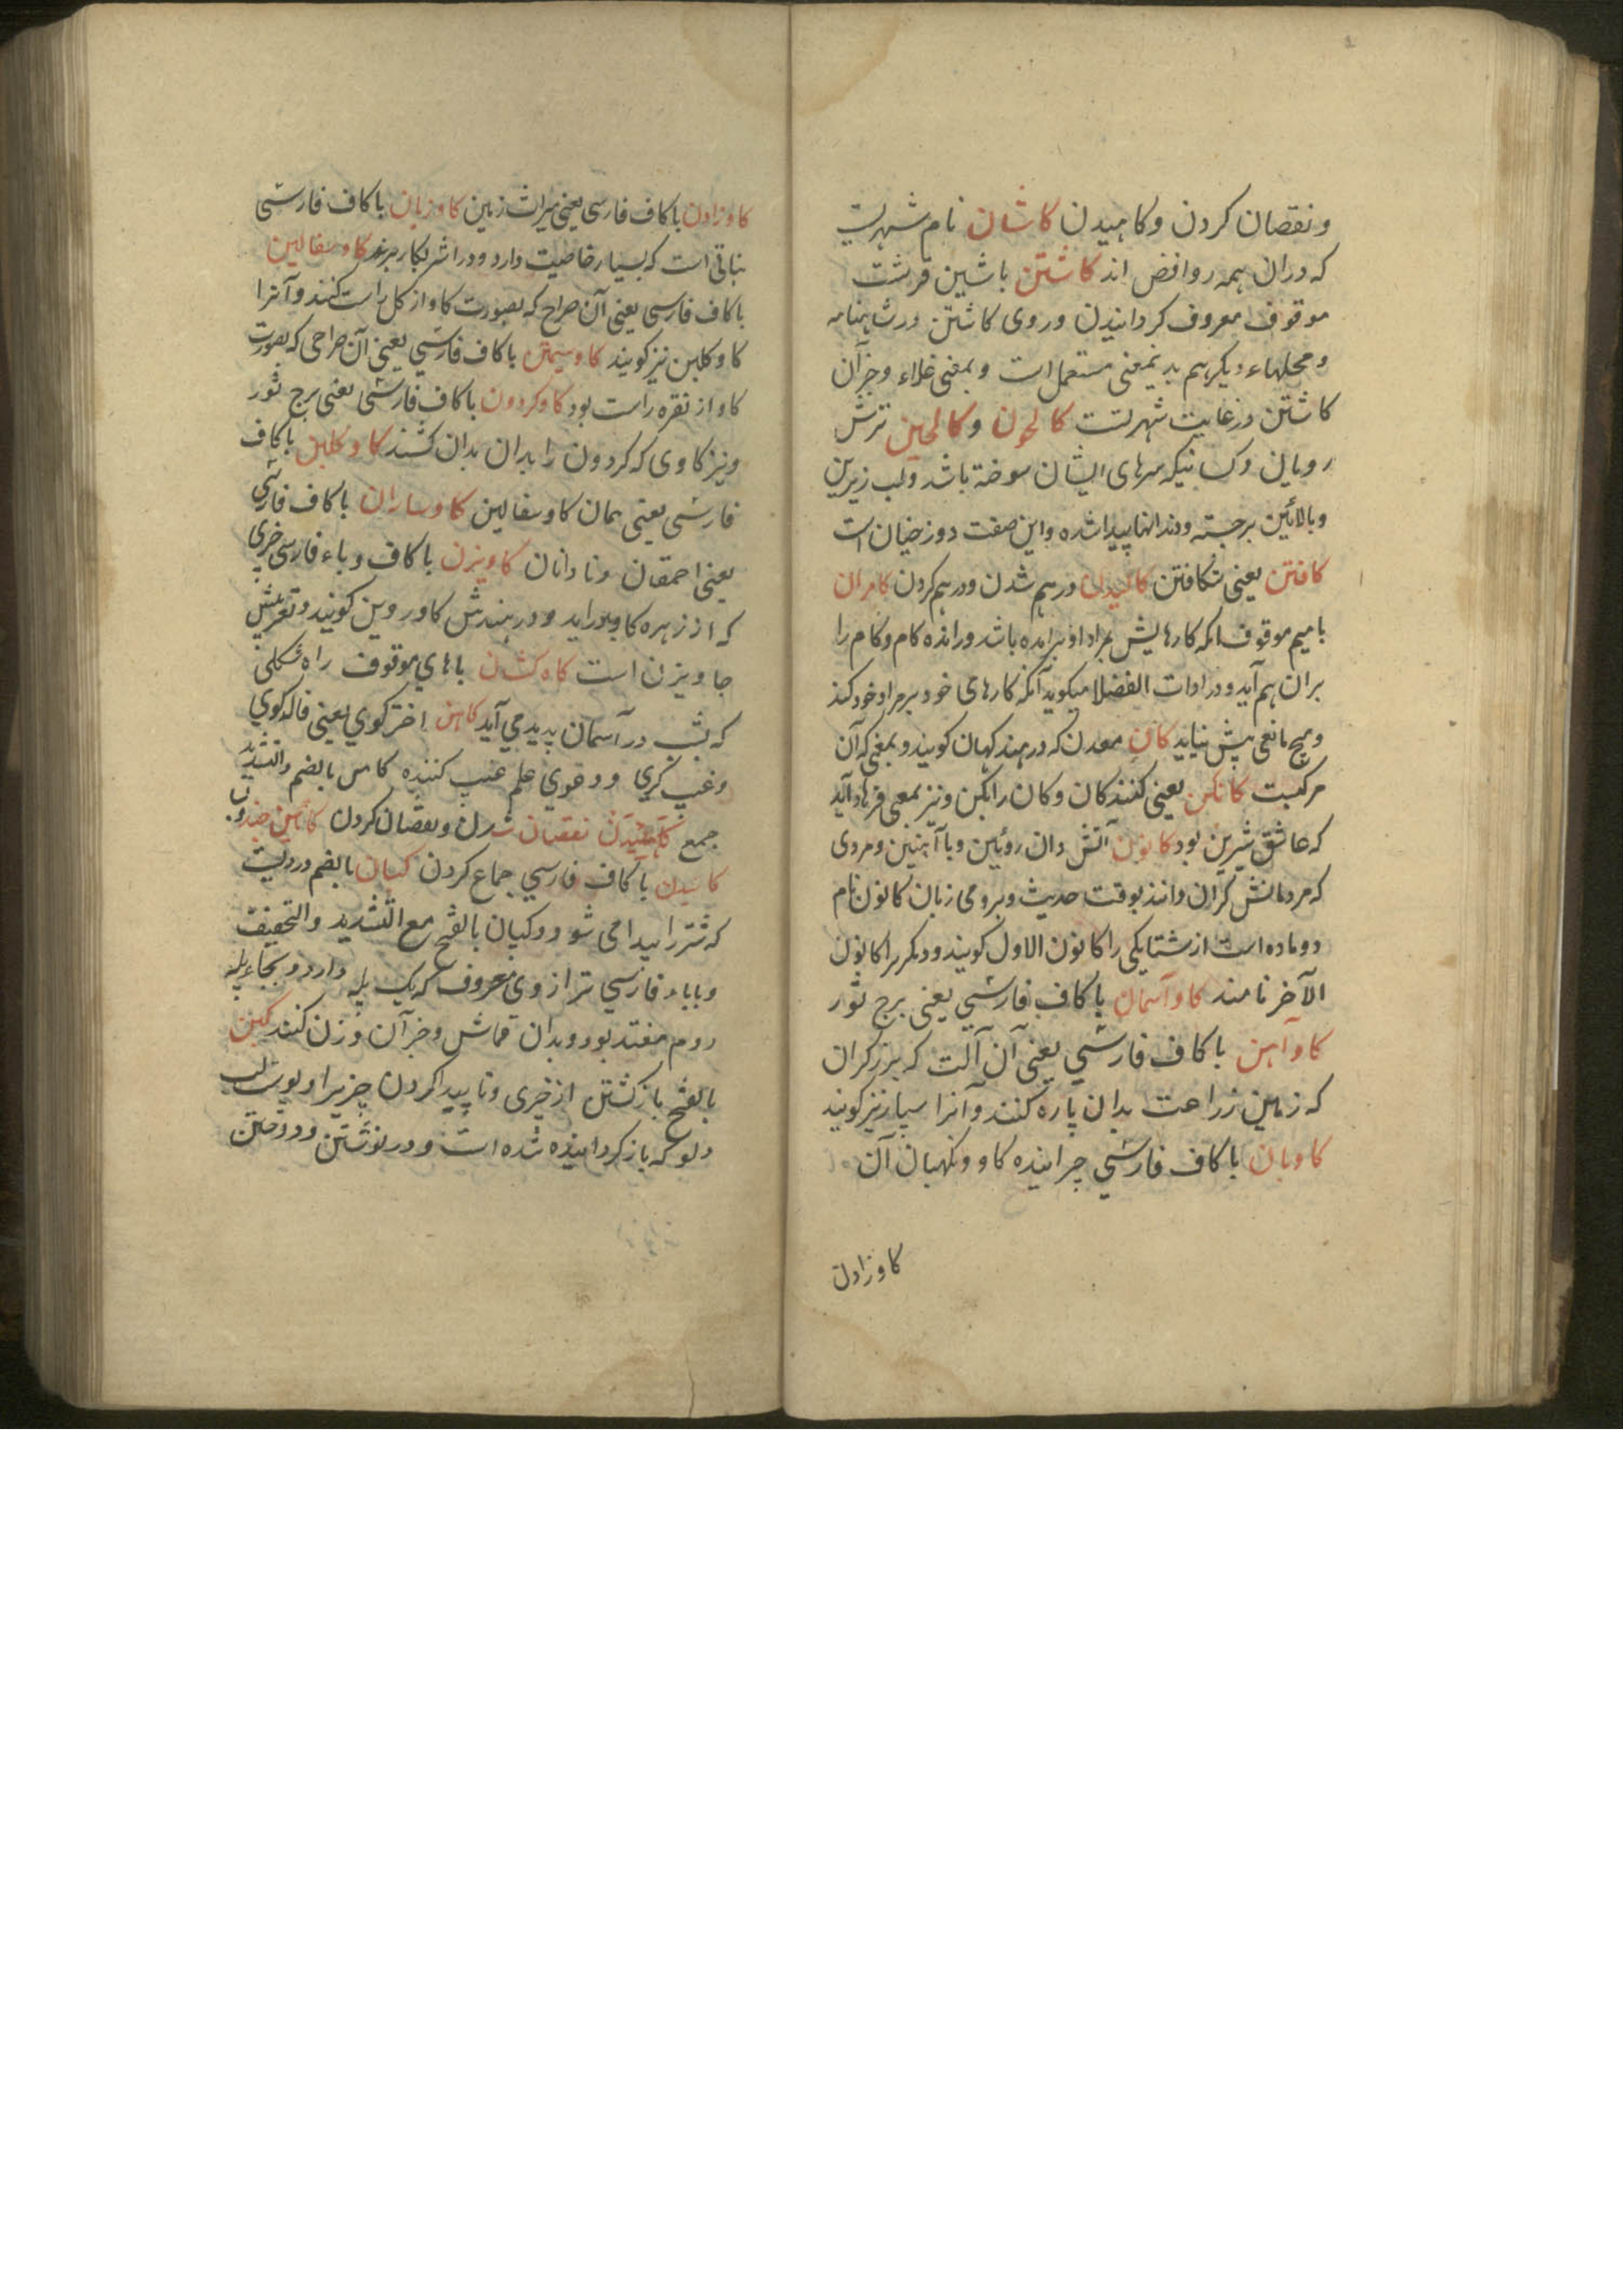 ونقصان کردن وکاهیدن کاشان نام شهریست
که دران همه روافض اند کاشتن باشین قرشت
موقوف معروف کردانیدن وروی کاشتن ورشاهنامه
ومحلهاء دیکر هم بدینمعنی مستعمل است وبمعنی غلاء وجزآن
کاشتن درغایت شهرتست کالحون وکالحین ترش
رویان وکسانیکه سرهای ایشان سوخته باشد ولب زیرین
وبالائین برجسته ودندانها پیداشده واین صفت دوزخیان است
کافتن یعنی شکافتن کالیدن درهم شدن ودرهم کردن کامران
بامیم موقوف انکه کارهایش بمراد او برامده باشد وراننده کام وکام را
بران هم آید ودر ادات الفضلا میکوید آنکه کارهای خود برمراد خود کند
وهیچ مانعی پیش نیاید کان معدن که درهند کهان کویند وبمعنی که آن
مرکبست کانکن یعنی کننده کان وکان را بکن ونیز بمعنی فرهاد آید
که عاشق شیرین بود کانون آتش دان روئین ویا آهنین ومردی
که مردمانش کران دانند بوقت حدیث وبرومی زبان کانون نام
دوماه است از شتا یکی را کانون الاول کویند ودیکر را کانون
الآخر نامند کاوآسمان باکاف فارسی یعنی برج ثور
کاوآهن باکاف فارسی یعنی آن آلت که برزکران
که زمین زراعت بدان پاره کنند وآنرا سپار نیز کویند
کاوبان باکاف فارسی چراننده کاو ونکهبان آن
کاوزادن
کاوزادن باکاف فارسی یعنی میراث زمین کاوزبان باکاف فارسی
نباتی است که بسیار خاصیت دارد ودر اشربکار برند کاوسفالین
باکاف فارسی یعنی آن صراح که بصورت کاو از کل راست کنند وآنرا
کاوکلین نیز کویند کاوسیمین باکاف فارسی یعنی آن صراحی که بصورت
کاو از نقره راست بود کاوکردون باکاف فارسی یعنی برج ثور
ونیز کاوی که کردون را بدان کشند کاوکلین باکاف
فارسی یعنی همان کاوسفالین کاوساران باکاف فارسی
یعنی احمقان ونادانان کاویزن باکاف وباء فارسی چیزی
که از زهره کاو براید ودر هندش کاوروین کویند وتعریبش
جاویزن است کاه کشان باهای موقوف راه شکلی
که بشب در آسمان پدید می آید کاهن اختر کوی یعنی فالکوی
وغیب کری ودعوی علم غیب کننده کاس بالضم والتشدید
جمع کاهیدن نقصان شدن ونقصان کردن کائین
کائیدن باکاف فارسی جماع کردن کبان بالضم دردیست
که شتر را پیدا می شود وکبان بالفتح مع التشدید والتخفیف
وباباء فارسی ترازوی معروف که یک پله دارد وبجاء پله
دوم بود وبدان قماش وجزآن وزن کنند کبن
بالفتح بازکشتن از خیری وناپیدا کردن چیزیرا وپوست لب
دلو که باز کردانیده شده است ودر نوشتن ودوختن